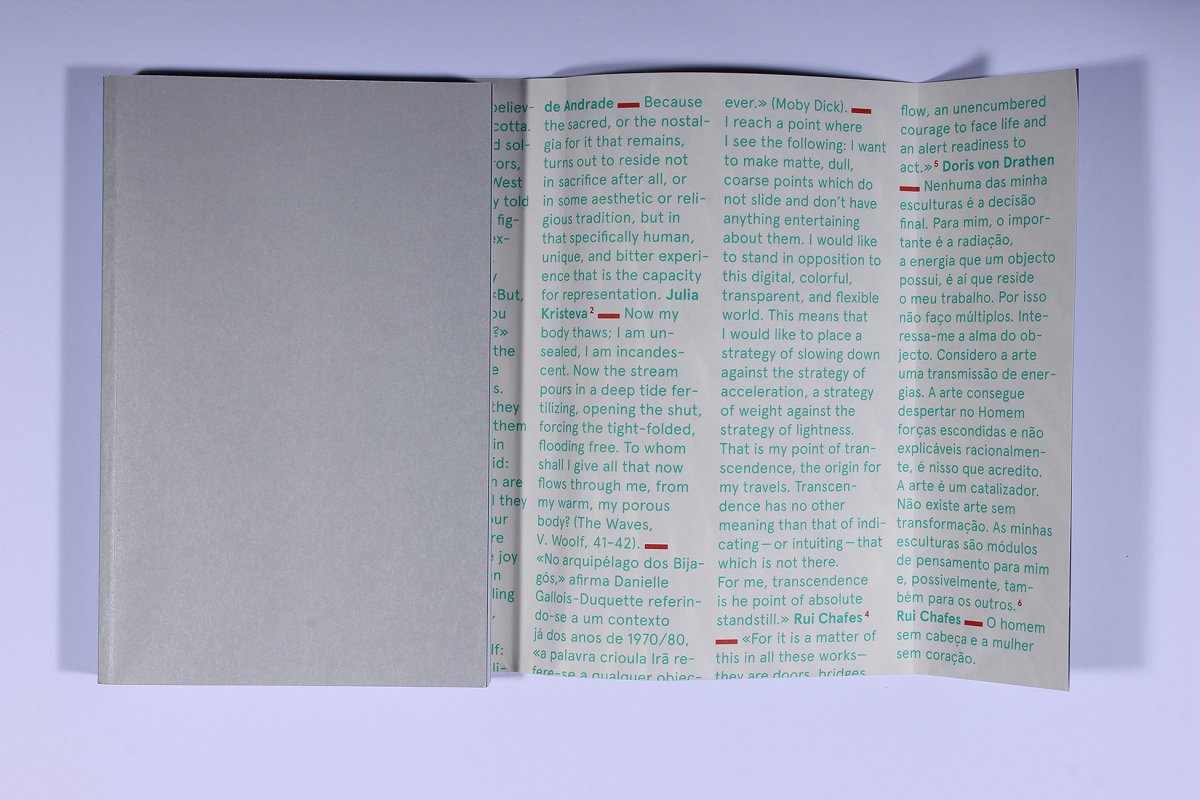 cotta.
West
told
«But,
the
they
them
in
are
they
joy
de Andrade — Because
the sacred, or the nostal-
gia for it that remains,
turns out to reside not
in sacrifice after all, or
in some aesthetic or reli-
gious tradition, but in
that specifically human,
unique, and bitter experi-
ence that is the capacity
for representation. Julia
Kristeva² — Now my
body thaws; I am un-
sealed, I am incandes-
cent. Now the stream
pours in a deep tide fer-
tilizing, opening the shut,
forcing the tight-folded,
flooding free. To whom
shall I give all that now
flows through me, from
my warm, my porous
body? (The Waves,
V. Woolf, 41-42). —
«No arquipélago dos Bija-
gós,» afirma Danielle
Gallois-Duquette referin-
do-se a um contexto
já dos anos de 1970/80,
«a palavra crioula Irã re-
fere-se a qualquer objec-
ever.» (Moby Dick). —
I reach a point where
I see the following: I want
to make matte, dull,
coarse points which do
not slide and don't have
anything entertaining
about them. I would like
to stand in opposition to
this digital, colorful,
transparent, and flexible
world. This means that
I would like to place a
strategy of slowing down
against the strategy of
acceleration, a strategy
of weight against the
strategy of lightness.
That is my point of tran-
scendence, the origin for
my travels. Transcen-
dence has no other
meaning than that of indi-
cating — or intuiting — that
which is not there.
For me, transcendence
is he point of absolute
standstill.» Rui Chafes⁴
— «For it is a matter of
this in all these works—
they are doors, bridges
flow, an unencumbered
courage to face life and
an alert readiness to
act.»⁵ Doris von Drathen
— Nenhuma das minha
esculturas é a decisão
final. Para mim, o impor-
tante é a radiação,
a energia que um objecto
possui, é aí que reside
o meu trabalho. Por isso
não faço múltiplos. Inte-
ressa-me a alma do ob-
jecto. Considero a arte
uma transmissão de ener-
gias. A arte consegue
despertar no Homem
forças escondidas e não
explicáveis racionalmen-
te, é nisso que acredito.
A arte é um catalizador.
Não existe arte sem
transformação. As minhas
esculturas são módulos
de pensamento para mim
e, possivelmente, tam-
bém para os outros.⁶
Rui Chafes — O homem
sem cabeça e a mulher
sem coração.